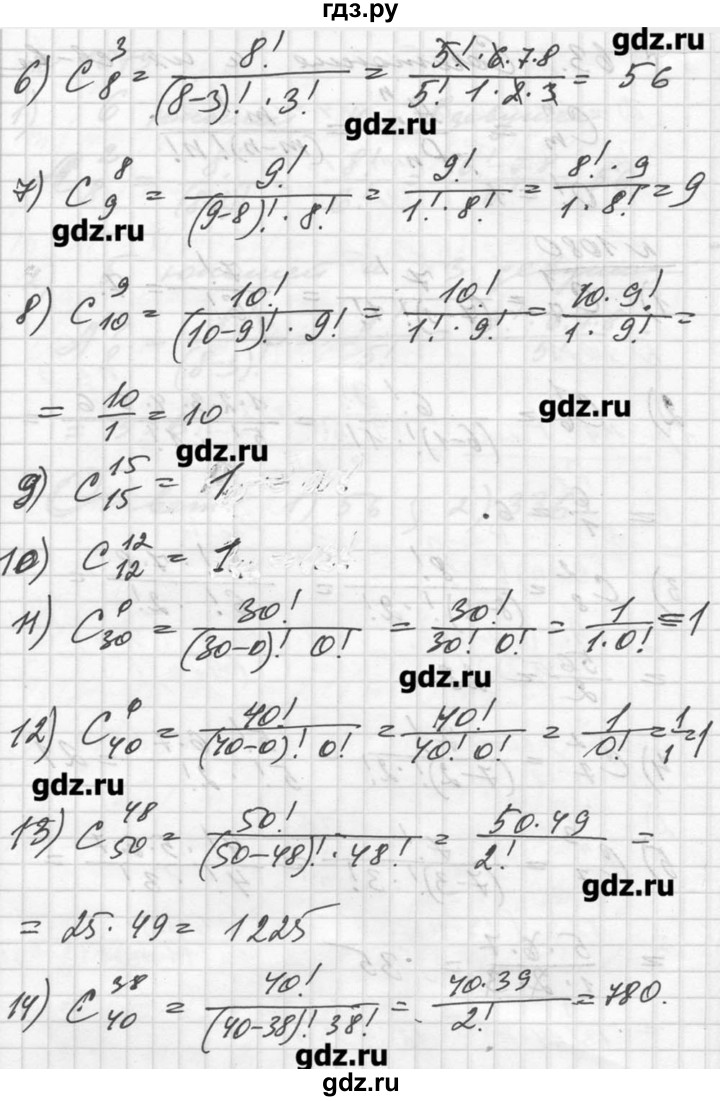 гдз.ру
gdz.ru
6) C₈³ = 8! / ((8-3)! · 3!) = 5! · 6 · 7 · 8 / (5! 1 · 2 · 3) = 56
gdz.ru
7) C₉⁸ = 9! / ((9-8)! · 8!) = 9! / (1! · 8!) = 8! · 9 / (1 · 8!) = 9
gdz.ru
8) C₁₀⁹ = 10! / ((10-9)! · 9!) = 10! / (1! · 9!) = 10 · 9! / (1 · 9!) =
= 10 / 1 = 10
gdz.ru
gdz.ru
9) C₁₅¹⁵ = 1
10) C₁₂¹² = 1
11) C₃₀⁰ = 30! / ((30-0)! 0!) = 30! / (30! 0!) = 1 / (1 · 0!) = 1
gdz.ru
12) C₄₀⁰ = 40! / ((40-0)! 0!) = 40! / (40! 0!) = 1 / 0! = 1/1 = 1
gdz.ru
13) C₅₀⁴⁸ = 50! / ((50-48)! · 48!) = 50 · 49 / 2! =
gdz.ru
= 25 · 49 = 1225
14) C₄₀³⁸ = 40! / ((40-38)! 38!) = 40 · 39 / 2! = 780.
gdz.ru
gdz.ru